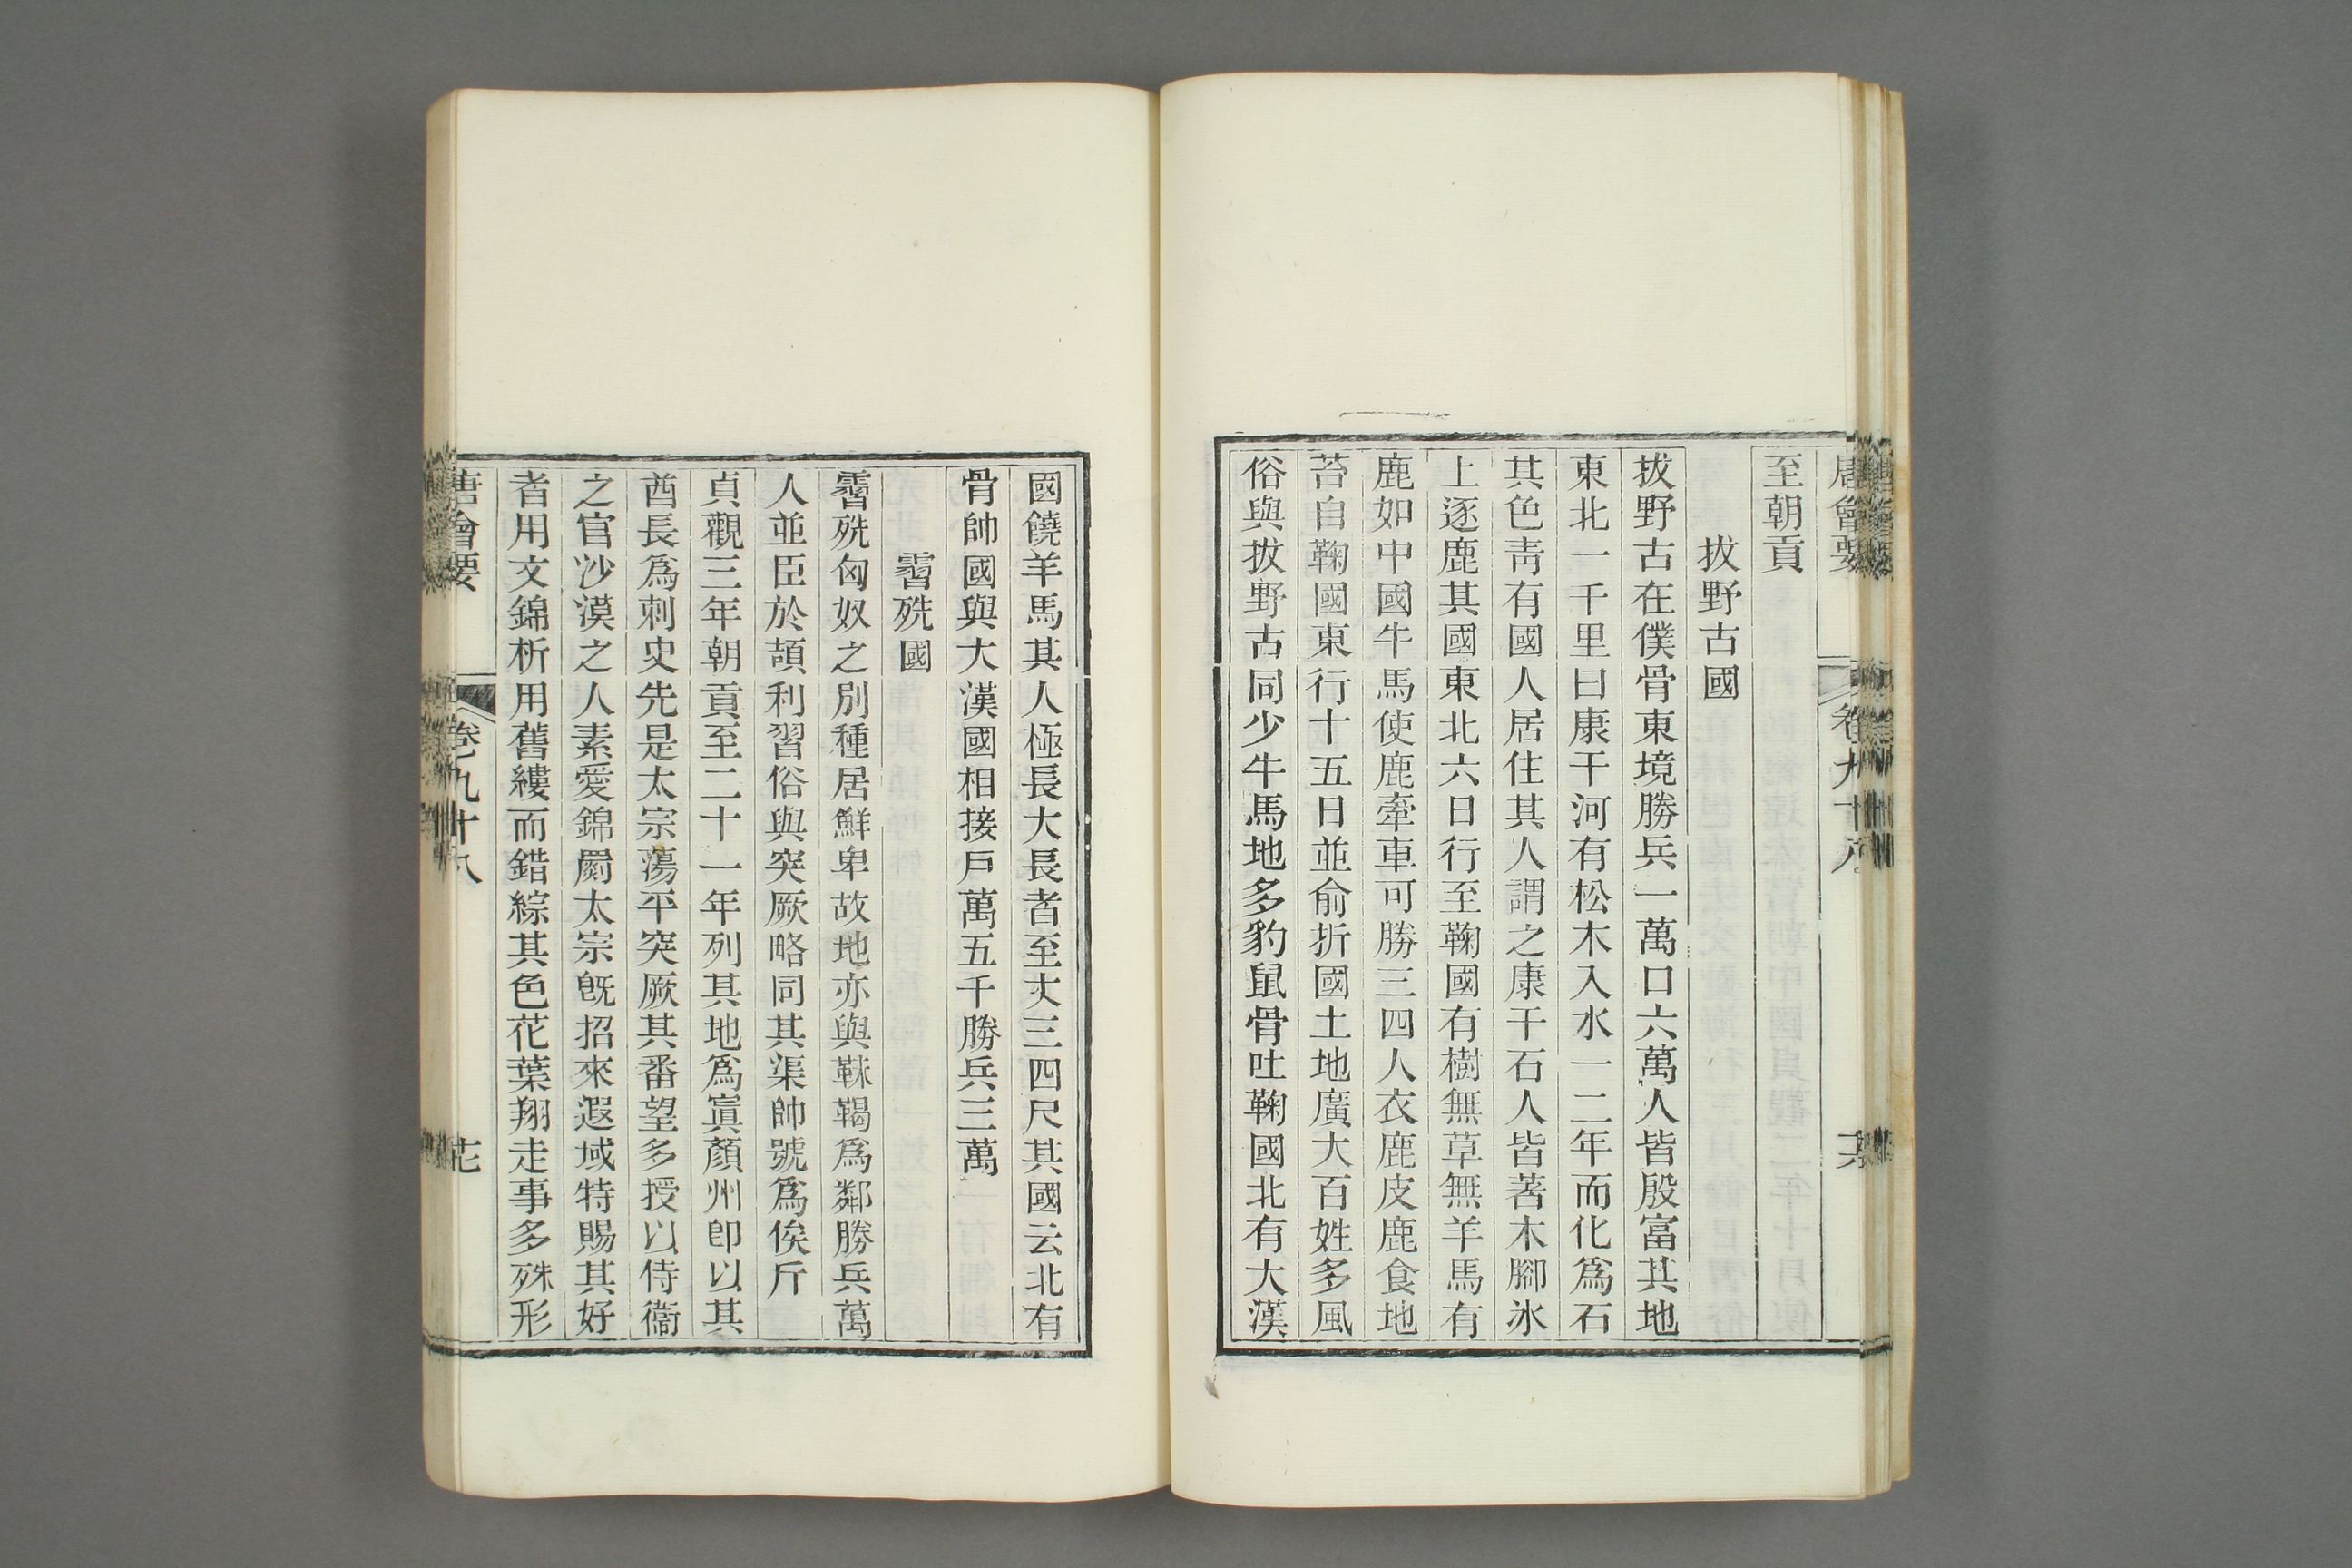 唐會要 卷九十八 十六
至朝貢
拔野古國
拔野古在僕骨東境勝兵一萬口六萬人皆殷富其地
東北一千里曰康干河有松木入水一二年而化爲石
其色青有國人居住其人謂之康干石人皆著木腳冰
上逐鹿其國東北六日行至鞠國有樹無草無羊馬有
鹿如中國牛馬使鹿牽車可勝三四人衣鹿皮鹿食地
苔自鞠國東行十五日並俞折國土地廣大百姓多風
俗與拔野古同少牛馬地多豹鼠骨吐鞠國北有大漢
國饒羊馬其人極長大長者至丈三四尺其國云北有
骨帥國與大漢國相接戶萬五千勝兵三萬
霫㱡國
霫㱡匈奴之別種居鮮卑故地亦與靺鞨爲鄰勝兵萬
人並臣於頡利習俗與突厥略同其渠帥號爲俟斤
貞觀三年朝貢至二十一年列其地爲寘顏州卽以其
酋長爲刺史先是太宗蕩平突厥其番望多授以侍衞
之官沙漠之人素愛錦罽太宗旣招來遐域特賜其好
者用文錦析用舊縷而錯綜其色花葉翔走事多殊形
唐會要 卷九十八 十七